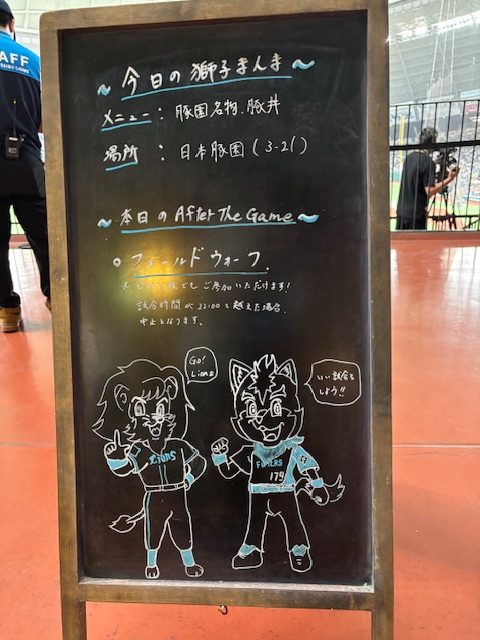 AFF
SEIBU LIONS
~今日の獅子まんま~
メニュー : 豚園名物、豚丼
場所 : 日本豚園(3-21)
~本日のAfter The Game~
○フィールドウォーク
でもご参加いただけます!
試合時間が22:00を越えた場合、
中止となります。
Go!
Lions
いい試合を
しよう!!
LIONS
FIGHTERS
179